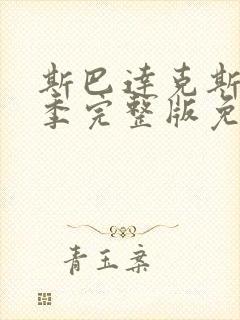 斯巴达克斯
季完整版免
青玉案